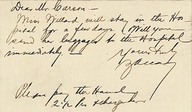 Dear Mr. Carson -
Miss Willard will stay in the Hos-
pital for a few days. Will you
send her baggage to the Hospital
immediately -
Yours truly
Please pay the Hand